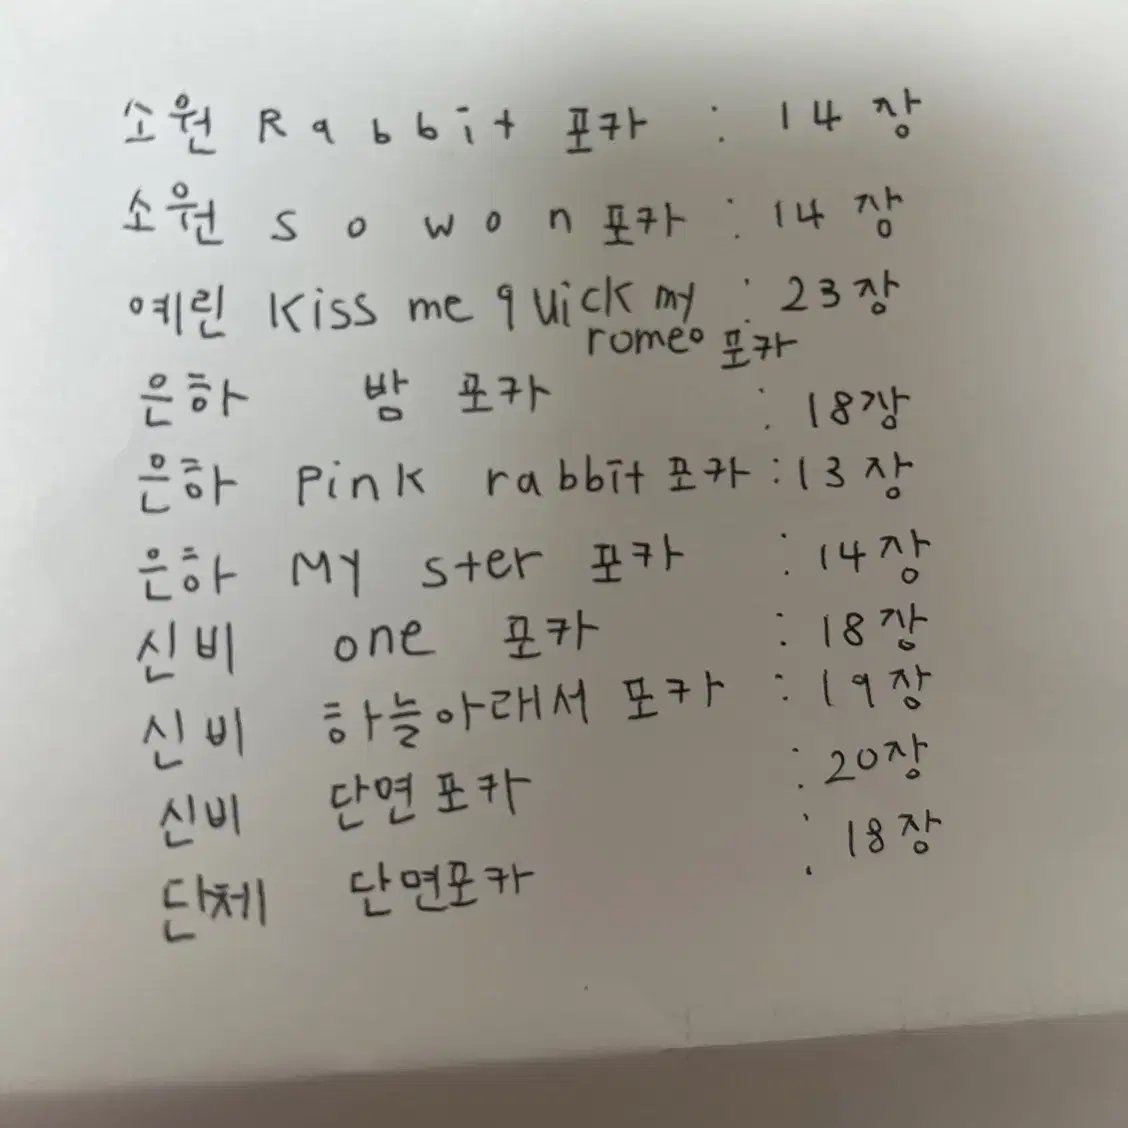 소원 Rabbit 포카 : 14장
소원 sowon 포카 : 14장
예린 kiss me quick my : 23장
romeo 포카
은하 밤 포카 : 18장
은하 Pink rabbit 포카 : 13장
은하 My ster 포카 : 14장
신비 one 포카 : 18장
신비 하늘아래서 포카 : 19장
신비 단면포카 : 20장
단체 단면포카 : 18장